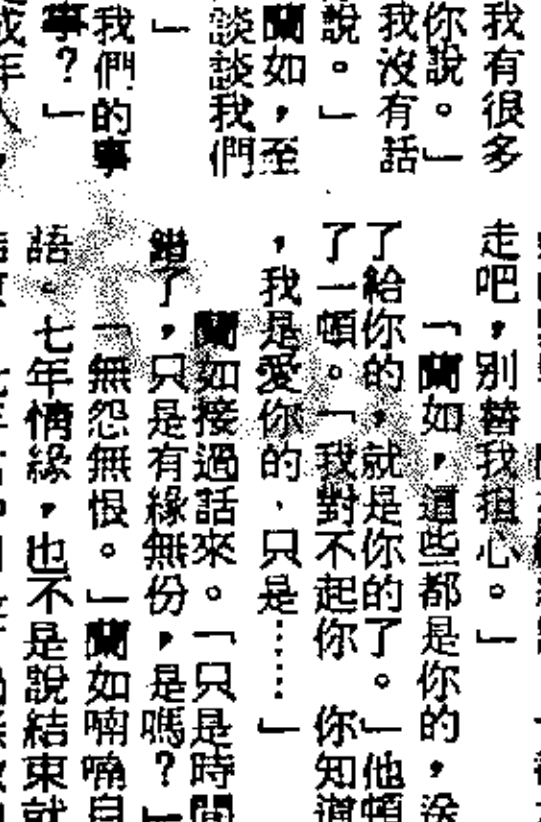 我有很多
你說。」
我沒有話
說。」
蘭如，至
談談我們
」
我們的事
事？」
成年人，
走吧，別替我担心。」
「蘭如，這些都是你的，送
了給你的，就是你的了。」他頓
了一頓。「我對不起你 你知道
，我是愛你的、只是……」
蘭如接過話來。「只是時間
錯了，只是有緣無份，是嗎？」
「無怨無恨。」蘭如喃喃自
語。七年情緣，也不是說結束就